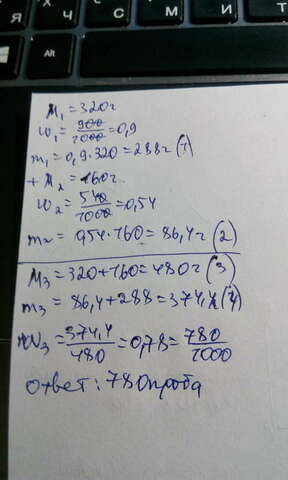 Я
Ч
С
Alt
M₁=320г
ω₁=900/1000=0,9
m₁=0,9·320=288г(1)
+ M₂=160г
ω₂=540/1000=0,54
m₂=0,54·160=86,4г(2)
M₃=320+160=480г(3)
m₃=86,4+288=374,4(4)
ω₃=374,4/480=0,78=780/1000
ответ: 780 проба